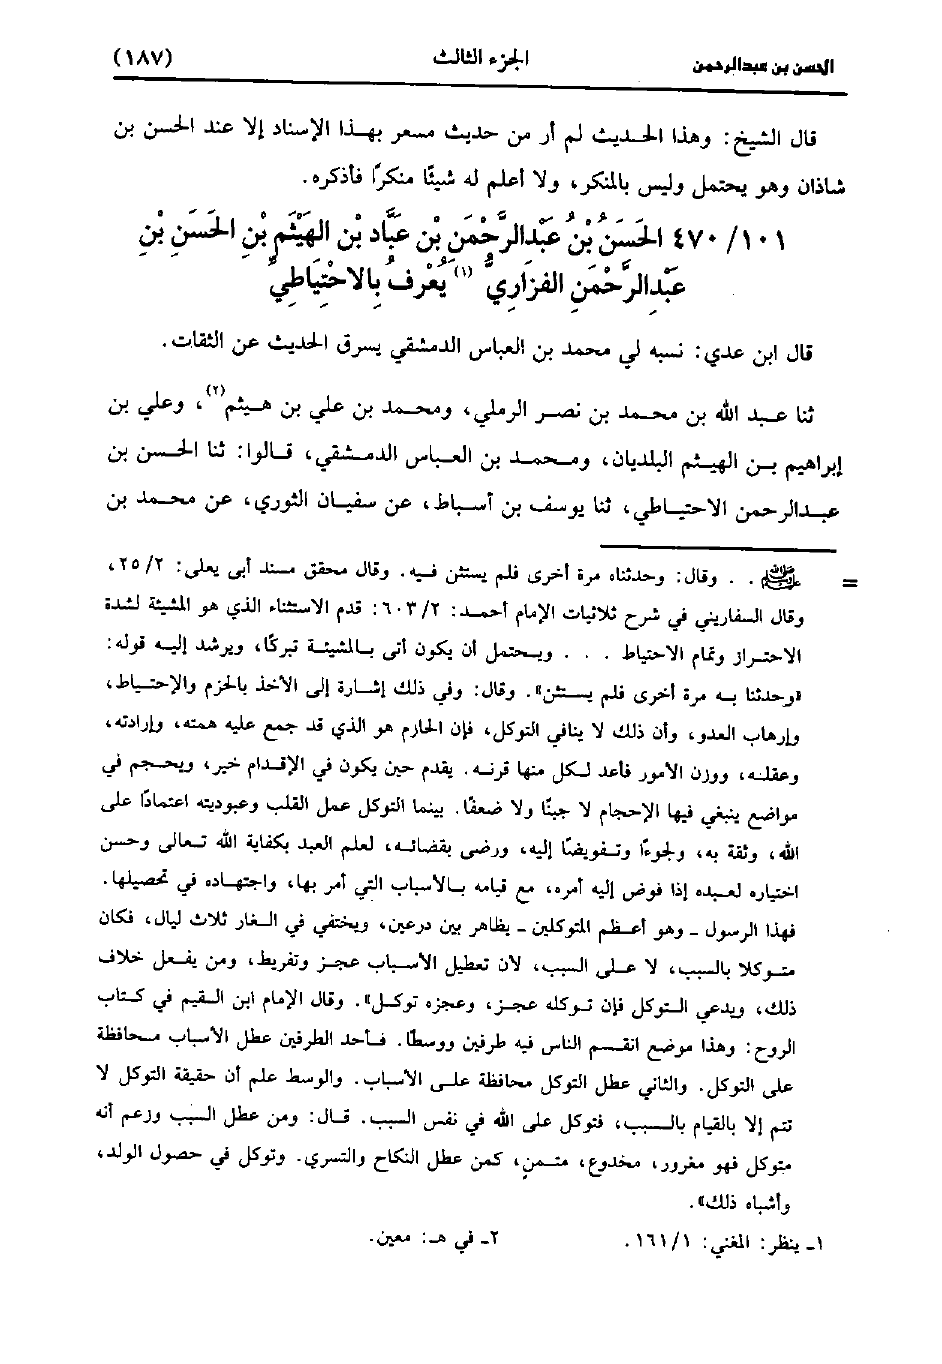 الحسن بن عبدالرحمن الجزء الثالث (١٨٧)
قال الشيخ: وهذا الحديث لم أر من حديث مسعر بهذا الإسناد إلا عند الحسن بن
شاذان وهو يحتمل وليس بالمنكر، ولا أعلم له شيئًا منكرًا فأذكره.
٤٧٠/١٠١ الحَسَنُ بْنُ عَبْدِالرَّحْمَنِ بْنِ عَبَّادِ بْنِ الهَيْثَمِ بْنِ الحَسَنِ بْنِ
عَبْدِالرَّحْمَنِ الفزارِيُّ (١) يُعْرَفُ بِالاحْتِيَاطِيِّ
قال ابن عدي: نسبه لي محمد بن العباس الدمشقي يسرق الحديث عن الثقات.
ثنا عبد الله بن محمد بن نصر الرملي، ومحمد بن علي بن هيثم(٢)، وعلي بن
إبراهيم بن الهيثم البلديان، ومحمد بن العباس الدمشقي، قالوا: ثنا الحسن بن
عبدالرحمن الاحتياطي، ثنا يوسف بن أسباط، عن سفيان الثوري، عن محمد بن
= ﷺ . . وقال: وحدثناه مرة أخرى فلم يستثن فيه. وقال محقق مسند أبي يعلى: ٢٥/٢،
وقال السفاريني في شرح ثلاثيات الإمام أحمد: ٦٠٣/٢: قدم الاستثناء الذي هو المشيئة لشدة
الاحتراز وتمام الاحتياط . . . ويحتمل أن يكون أتى بالمشيئة تبركًا، ويرشد إليه قوله:
«وحدثنا به مرة أخرى فلم يستثن». وقال: وفي ذلك إشارة إلى الأخذ بالحزم والاحتياط،
وإرهاب العدو، وأن ذلك لا ينافي التوكل، فإن الحازم هو الذي قد جمع عليه همته، وإرادته،
وعقله، ووزن الأمور فأعد لكل منها قرنه. يقدم حين يكون في الإقدام خير، ويحجم في
مواضع ينبغي فيها الإحجام لا جبنًا ولا ضعفًا. بينما التوكل عمل القلب وعبوديته اعتمادًا على
الله، وثقة به، ولجوءًا وتفويضًا إليه، ورضى بقضائه، لعلم العبد بكفاية الله تعالى وحسن
اختياره لعبده إذا فوض إليه أمره، مع قيامه بالأسباب التي أمر بها، واجتهاده في تحصيلها.
فهذا الرسول - وهو أعظم المتوكلين - يظاهر بين درعين، ويختفي في الغار ثلاث ليال، فكان
متوكلا بالسبب، لا على السبب، لأن تعطيل الأسباب عجز وتفريط، ومن يفعل خلاف
ذلك، ويدعي التوكل فإن توكله عجز، وعجزه توكل». وقال الإمام ابن القيم في كتاب
الروح: وهذا موضع انقسم الناس فيه طرفين ووسطًا. فأحد الطرفين عطل الأسباب محافظة
على التوكل. والثاني عطل التوكل محافظة على الأسباب. والوسط علم أن حقيقة التوكل لا
تتم إلا بالقيام بالسبب، فتوكل على الله في نفس السبب. قال: ومن عطل السبب وزعم أنه
متوكل فهو مغرور، مخدوع، متمن، كمن عطل النكاح والتسري. وتوكل في حصول الولد،
وأشباه ذلك».
١- ينظر: المغني: ١٦١/١. ٢- في هـ: معين.